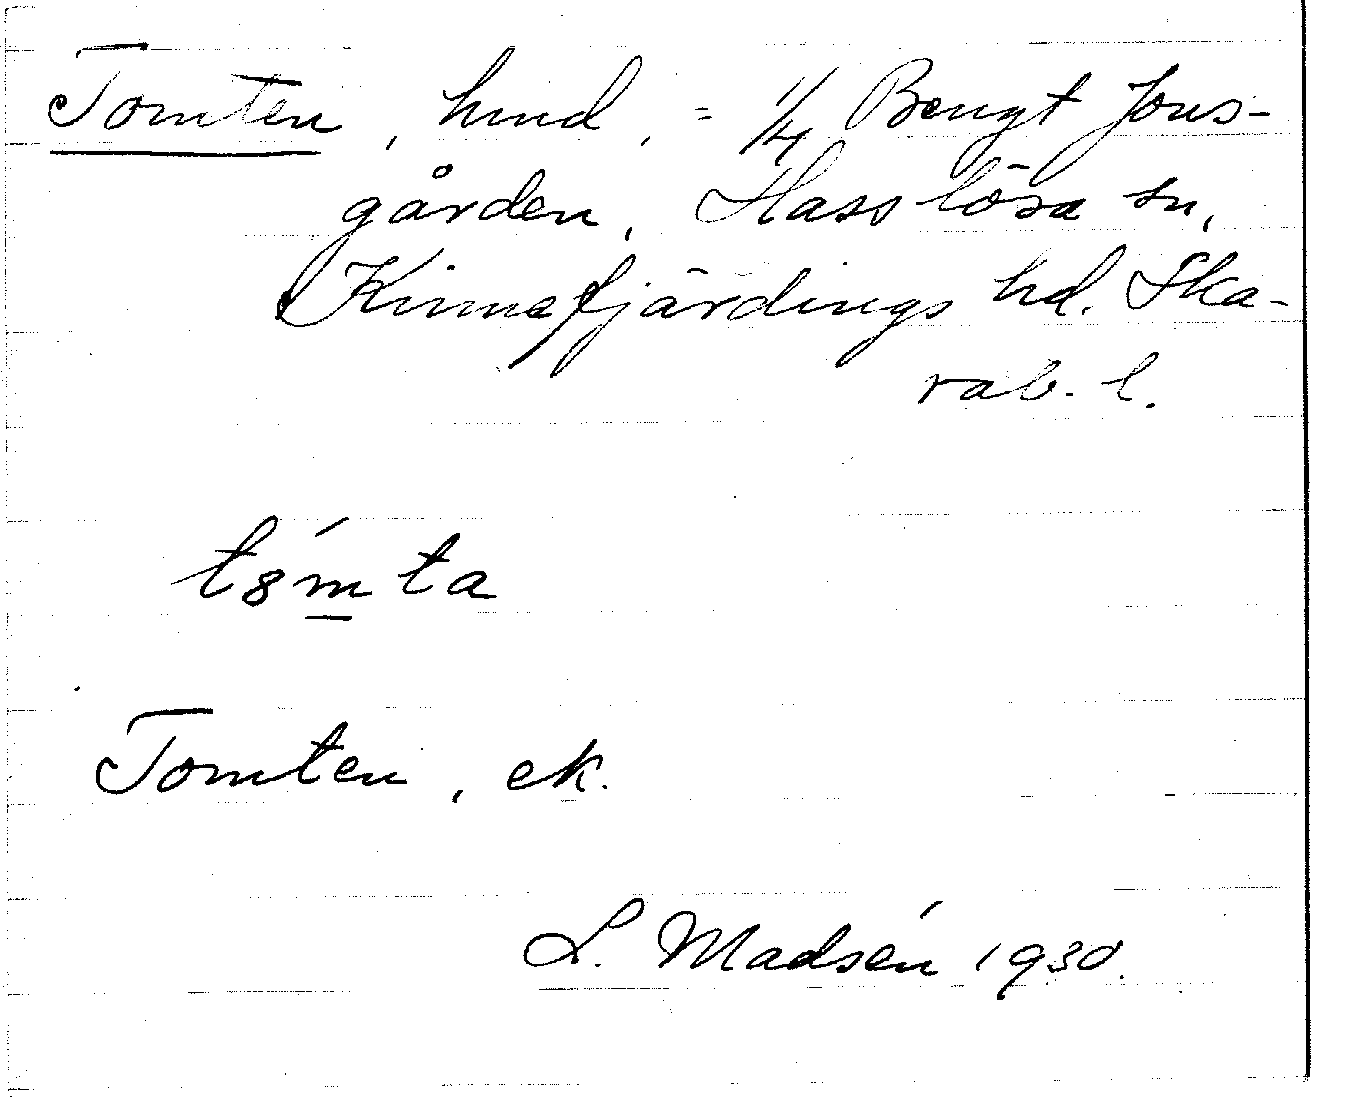 Tomten, hmd, = 1/4 Bengt Jons-
gården, Hasslösa sn,
Kinnefjärdings hd. Ska-
rab. l.
t8́m̲ta
Tomten, ek.
L. Madsén 1930.